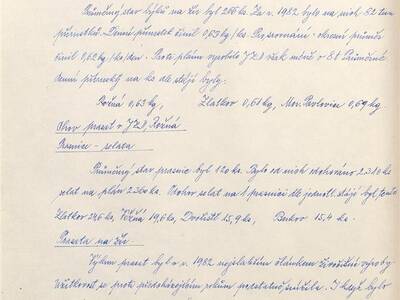 Průměrný stav býků na žír byl 286 ks. Za r. 1982 bylo na nich 82 tun
přírustků. Denní přírustek činil 0,63 kg/ks. Pro srovnání - okresní průměr
činil 0,62 kg/ks/den. Proti plánu vyrobilo JZD však méně o 8 t. Průměrné
denní přírustky na ks dle stájí byly:
Rožná 0,63 kg, Zlatkov 0,61 kg, Mor. Pavlovice 0,69 kg
Chov prasat v JZD Rožná
Prasnice - selata
Průměrný stav prasnic byl 120 ks. Bylo od nich odchováno 2310 ks
selat na plán 2360 ks. Odchov selat na 1 prasnici dle jednotl. stájí byl tento
Zlatkov 24,6 ks, Rožná 19,6 ks, Dvořiště 15,9 ks, Bukov 15,4 ks.
Prasata na žír
Výkrm prasat byl v r. 1982 nejslabším článkem živočišné výroby
Užitkovost se proti předcházejícím rokům podstatně snížila. I když bylo